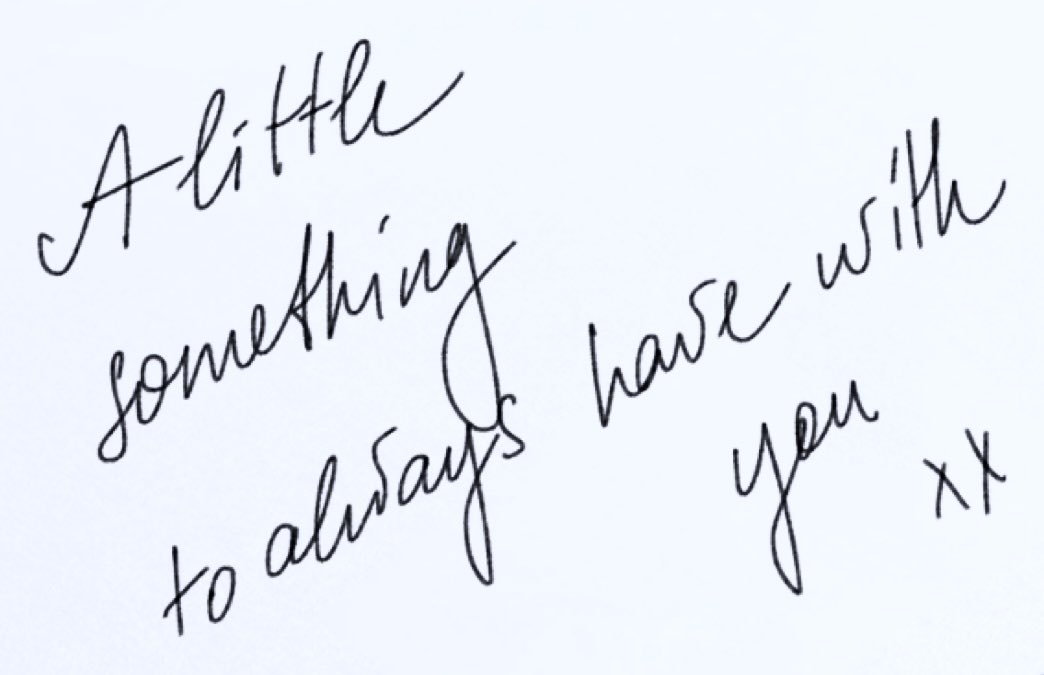 A little
something
to always have with
you xx